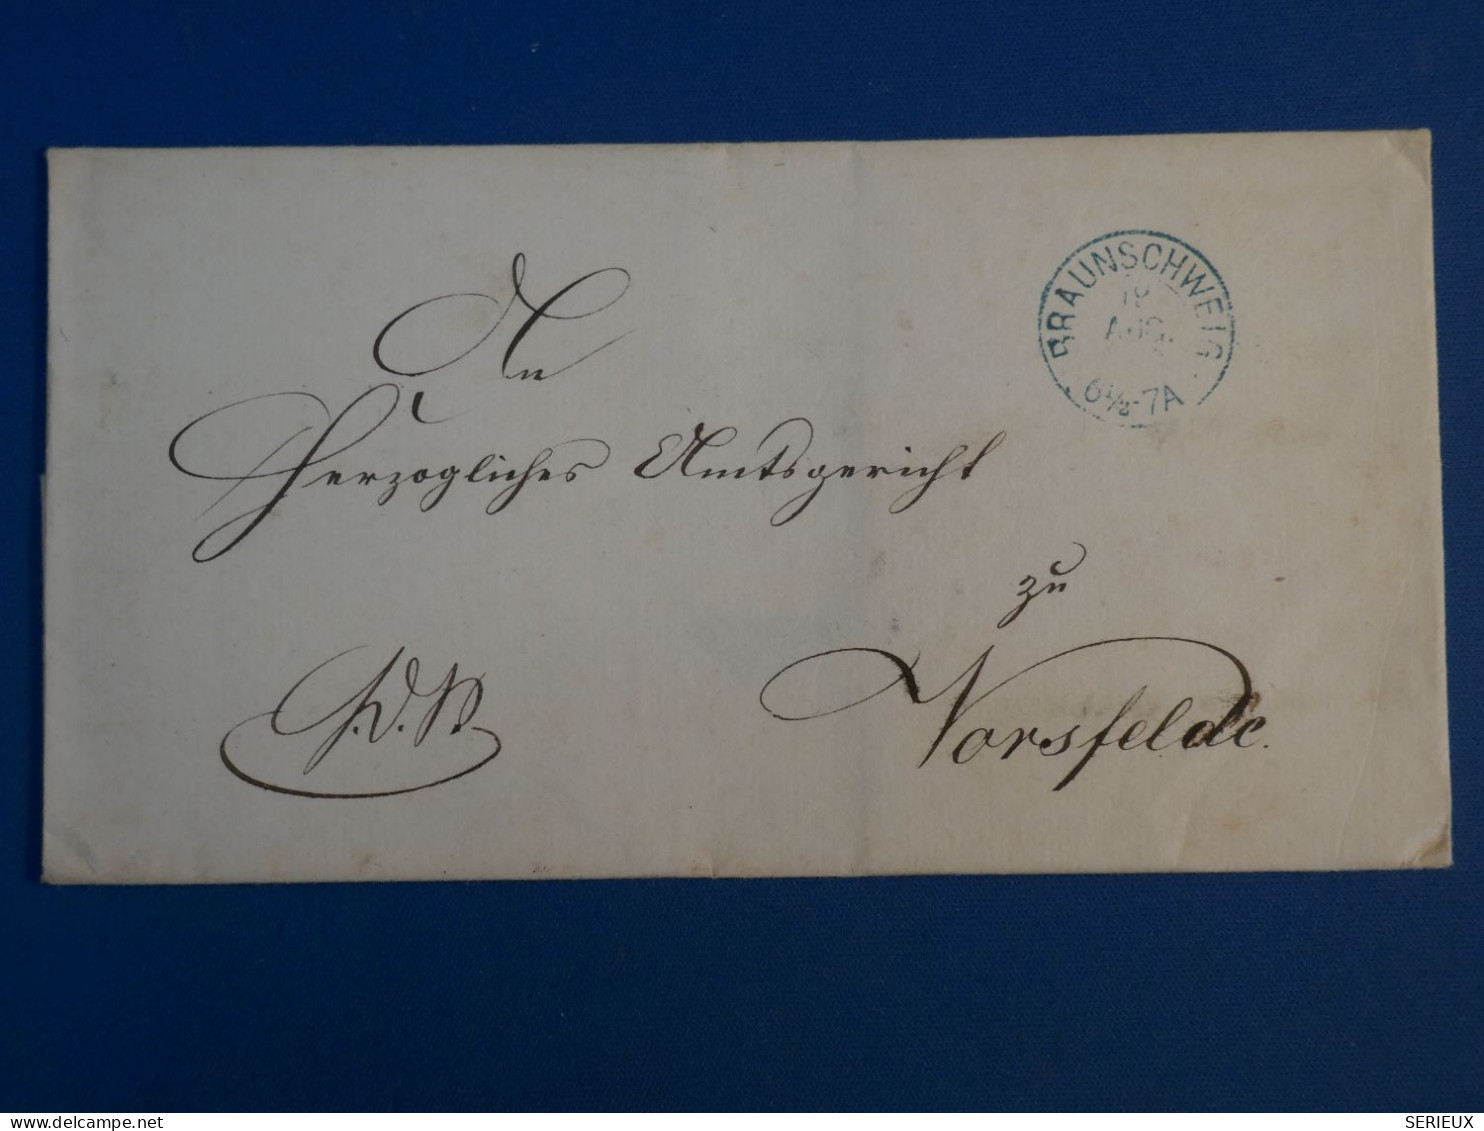 BRAUNSCHWEIG
AUG.
6½-7A
An
Herzogliches Amtsgericht
zu
Vorsfelde.
delcampe.net
SERIEUX